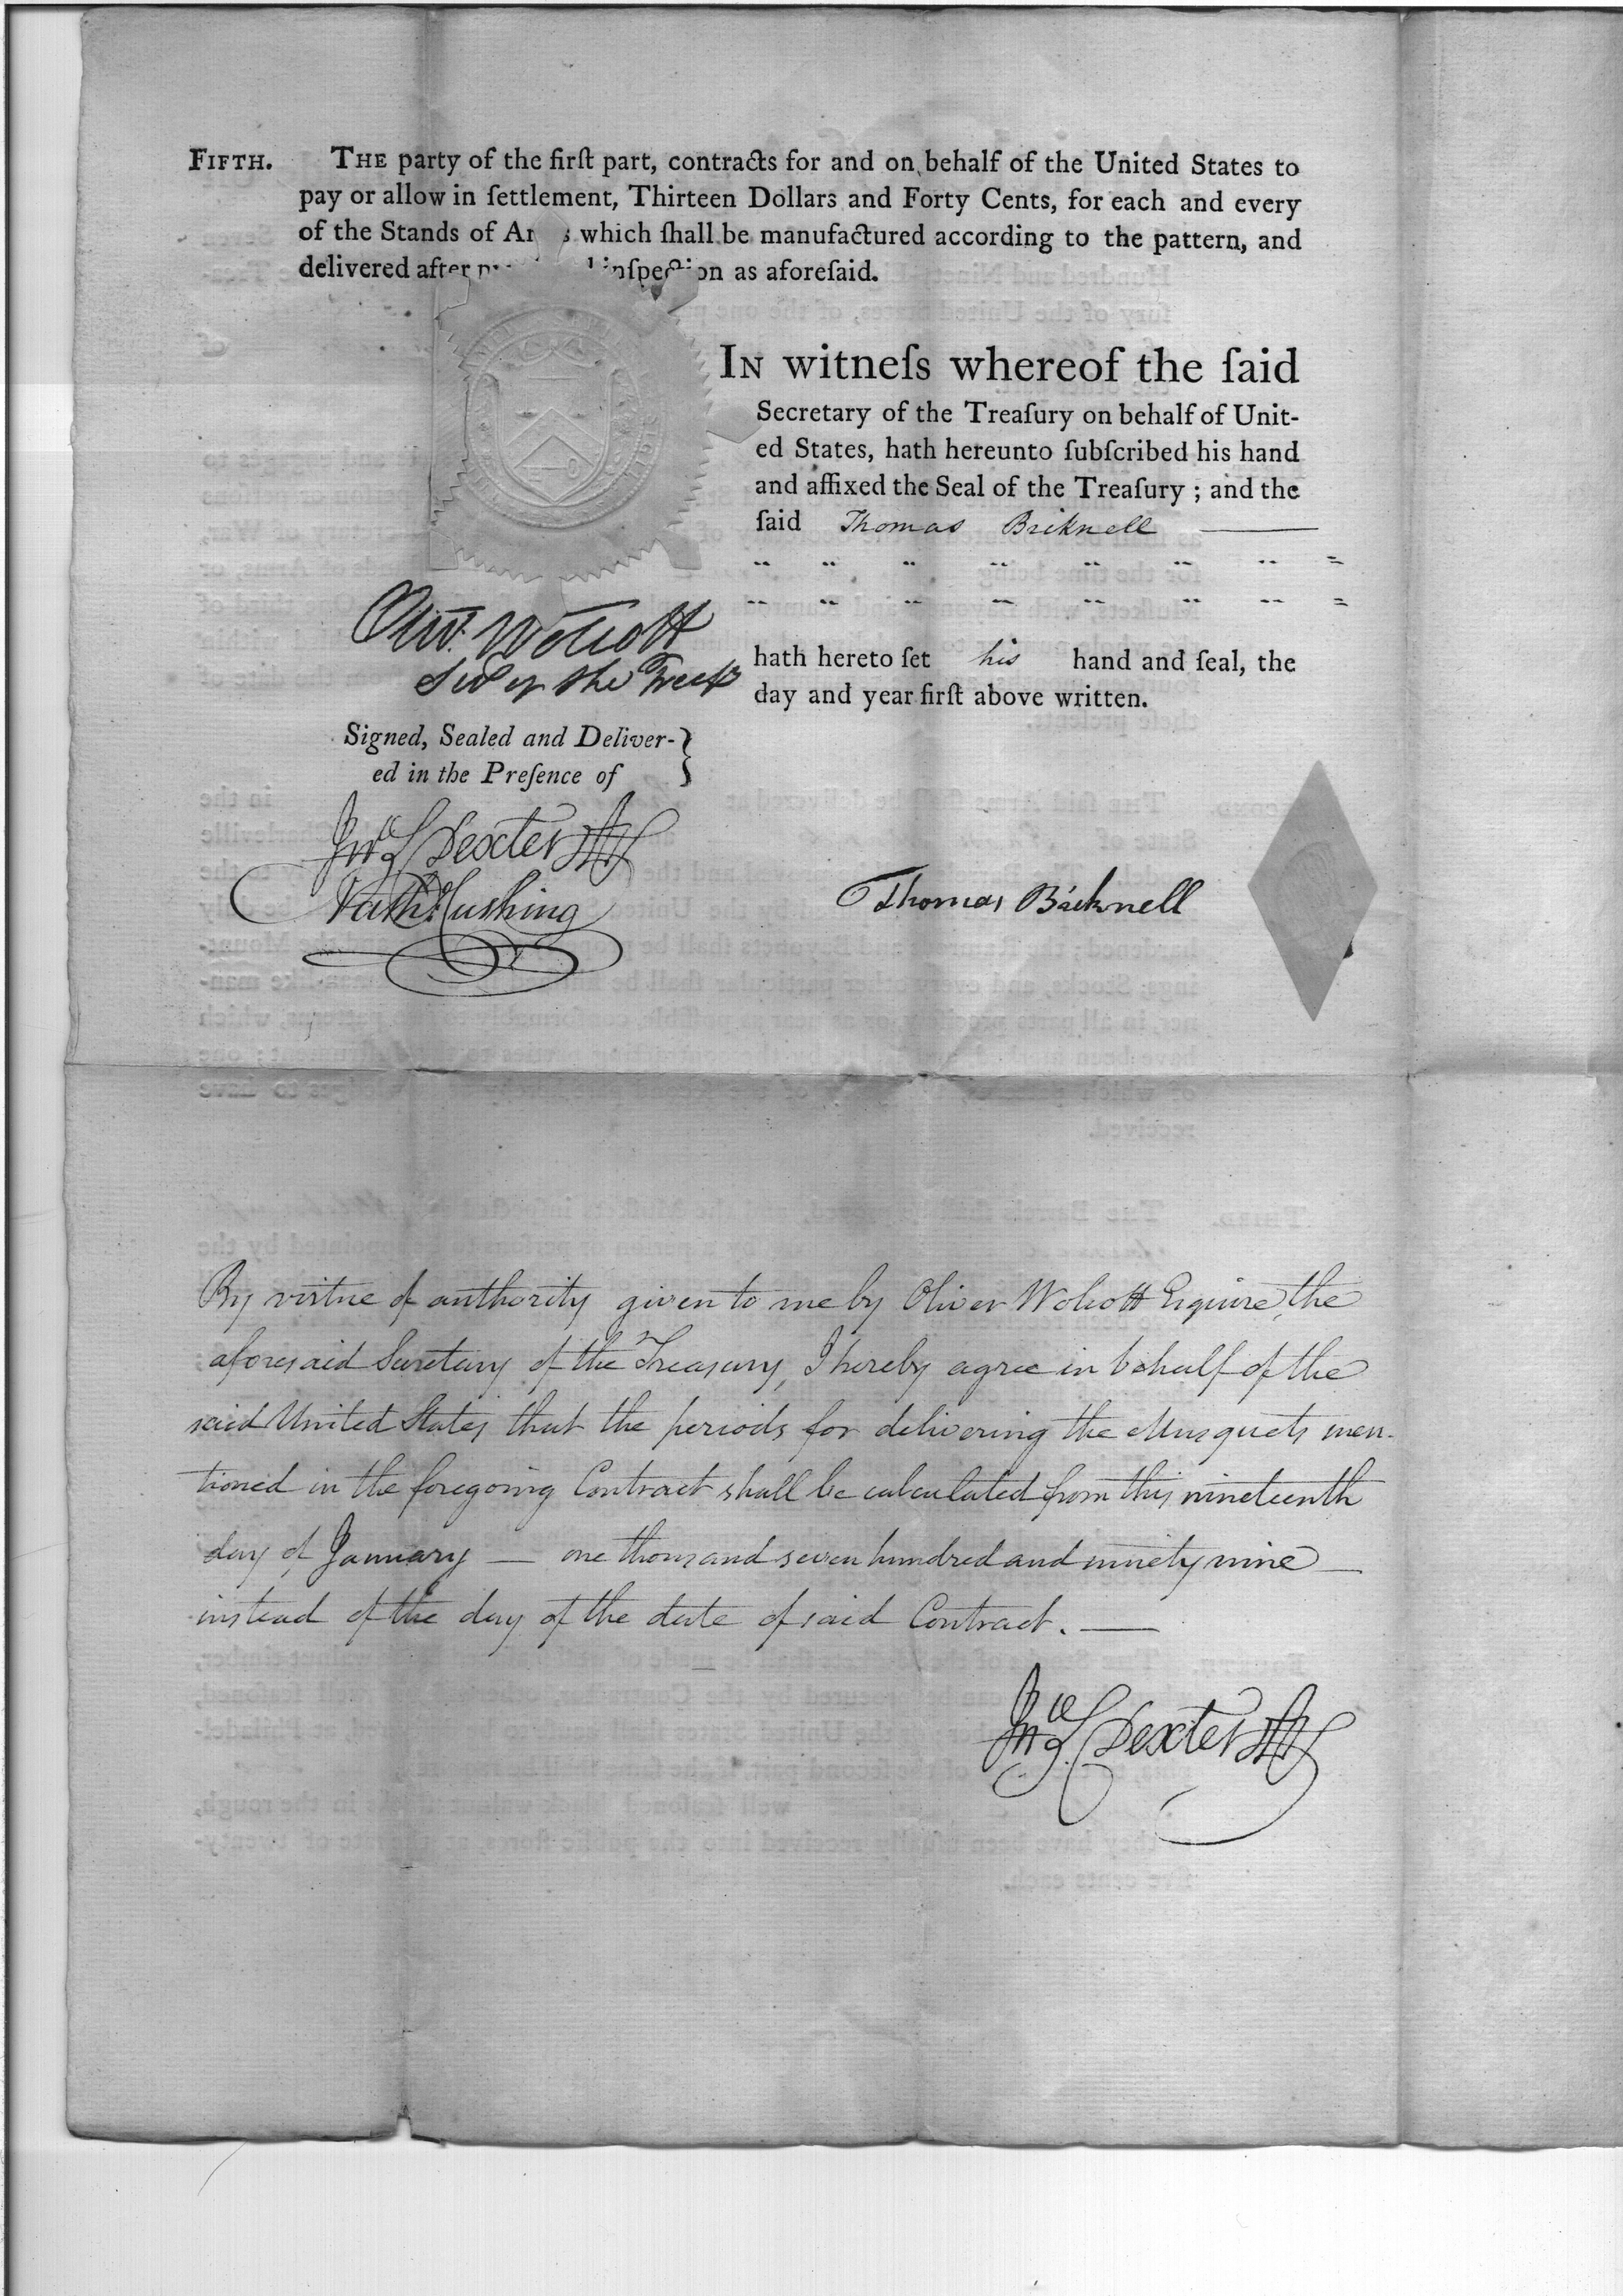 FIFTH. THE party of the firſt part, contracts for and on behalf of the United States to
pay or allow in ſettlement, Thirteen Dollars and Forty Cents, for each and every
of the Stands of Ar s which ſhall be manufactured according to the pattern, and
delivered after inſpection as aforeſaid.
IN witneſs whereof the ſaid
Secretary of the Treaſury on behalf of Unit-
ed States, hath hereunto ſubſcribed his hand
and affixed the Seal of the Treaſury ; and the
ſaid Thomas Bicknell
hath hereto ſet his hand and ſeal, the
day and year firſt above written.
Olivr. Wolcott
Secy of the Treasy
Signed, Sealed and Deliver-
ed in the Preſence of
Jno. S. Dexter
Nathl. Cushing
Thomas Bicknell
By virtue of authority given to me by Oliver Wolcott Esquire, the
aforesaid Secretary of the Treasury, I hereby agree in behalf of the
said United States that the periods for delivering the Musquets men-
tioned in the foregoing Contract shall be calculated from this nineteenth
day of January — one thousand seven hundred and ninety nine —
instead of the day of the date of said Contract. —
Jno. S. Dexter